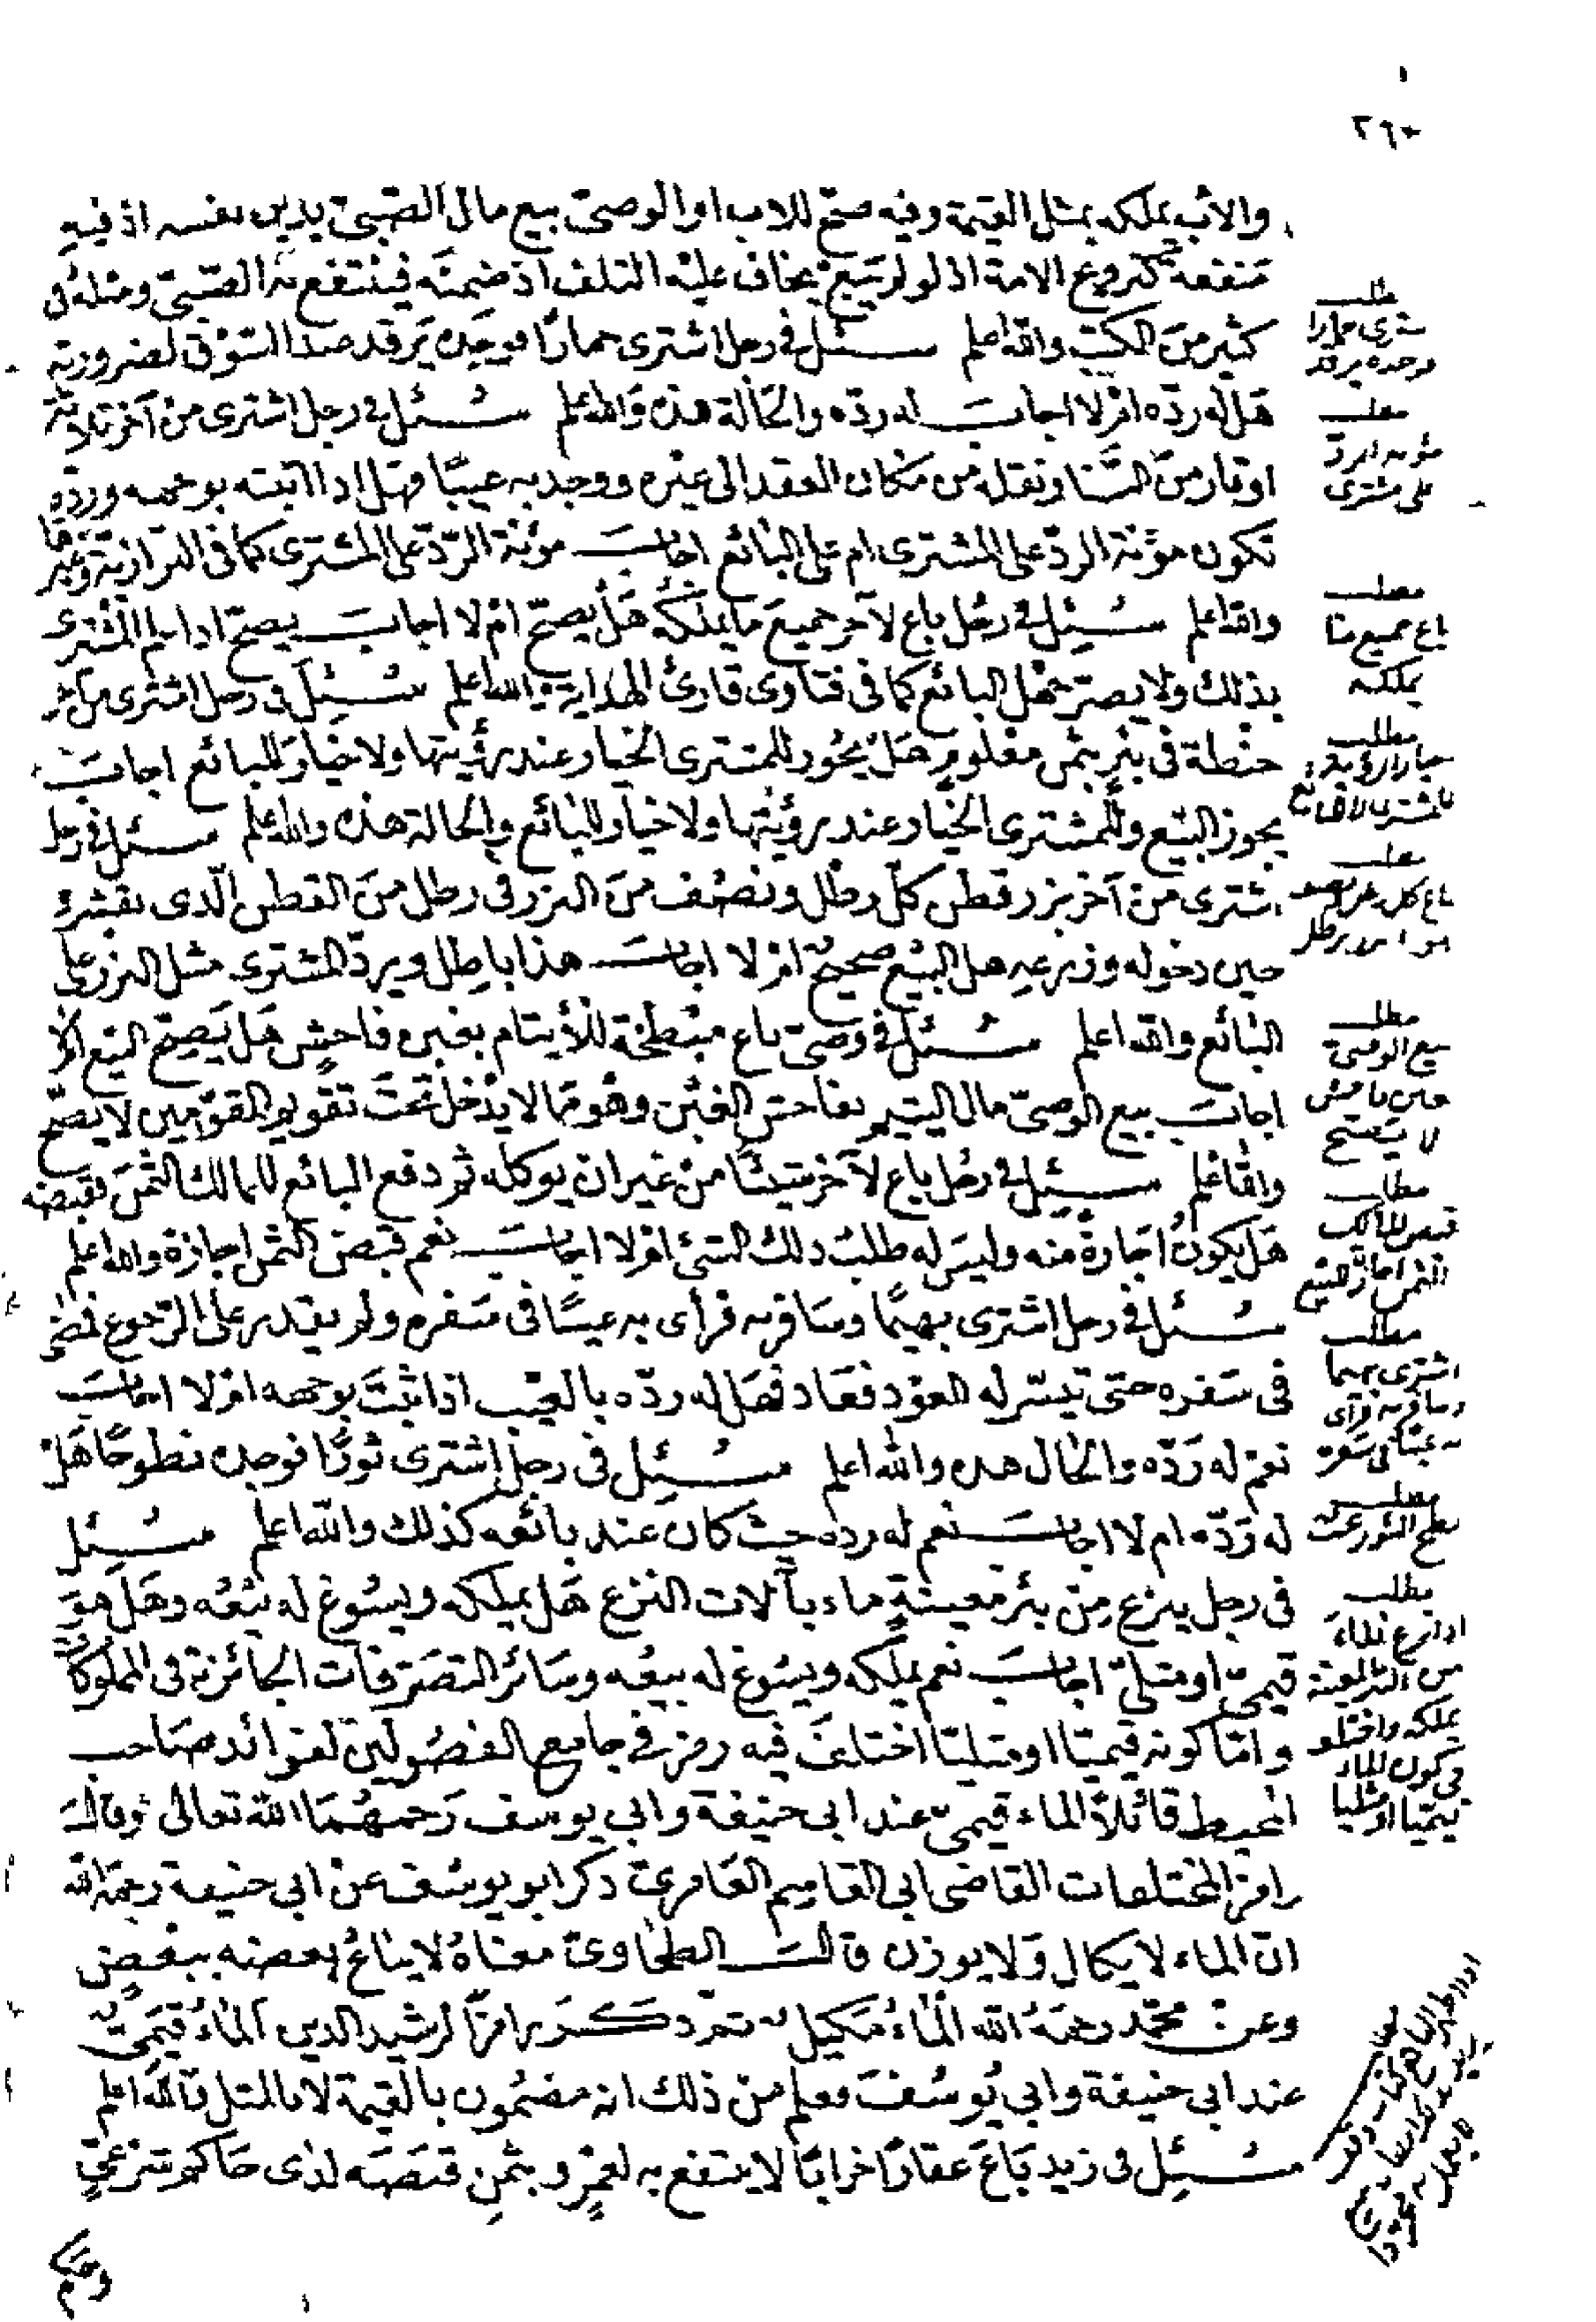 ٢٦٠
والأب يملكه بمثل القيمة وفيه صح للاب او الوصى بيع مال الصبى بدين نفسه اذ فيه
منفعة كتزويج الامة اذ لو لم يبع يخاف عليه التلف اذ ضمنه فينتفع به الصبى ومثله فى
كثير من الكتب والله اعلم سئل فى رجل اشترى حمارا فوجده يرقد ضد السوق لضرورته
هل له ردّه ام لا اجاب له ردّه والحالة هذه والله اعلم سئل فى رجل اشترى من آخر ثلاثة
اوقار من ونقله من مكان العقد الى غيره ووجد به عيبا فهل اذا اثبته بوجهه وردّه
تكون مؤنة الردّ على المشترى ام على البائع اجاب مؤنة الردّ على المشترى كما فى البزازية وغيرها
والله اعلم سئل فى رجل باع لآخر جميع ما يملكه هل يصح ام لا اجاب يصح اذا علم المشترى
بذلك ولا يضر جهل البائع كما فى فتاوى قارئ الهداية والله اعلم سئل فى رجل اشترى من آخر
حنطة فى بئر بثمن معلوم هل يجوز للمشترى الخيار عند رؤيتها ولا خيار للبائع اجاب
يجوز البيع وللمشترى الخيار عند رؤيتها ولا خيار للبائع والحالة هذه والله اعلم سئل فى رجل
اشترى من آخر بزر قطن كل رطل ونصف من البزر فى رطل من القطن الّذى بقشره
حين دخوله وزرعه هل البيع صحيح ام لا اجاب هذا باطل ويردّ المشترى مثل البزر على
البائع والله اعلم سئل فى وصىّ باع مبطخة للأيتام بغبن فاحش هل يصح البيع ام لا
اجاب بيع الوصىّ مال اليتيم بفاحش الغبن وهو ما لا يدخل تحت تقويم المقوّمين لا يصح
والله اعلم سئل فى رجل باع لآخر شيئا من غير ان يوكله ثم دفع البائع للمالك الثمن فقبضه
هل يكون اجازة منه وليس له طلب ذلك الشئ ام لا اجاب نعم قبض الثمن اجازة والله اعلم
سئل فى رجل اشترى بهيما وسافر به فرأى به عيبا فى سفره ولم يقدر على الرجوع فمضى
فى سفره حتى تيسّر له العود فعاد فهل له ردّه بالعيب اذا ثبت بوجهه ام لا اجاب
نعم له ردّه والحال هذه والله اعلم سئل فى رجل اشترى ثورا فوجده نطوحا هل
له ردّه ام لا اجاب نعم له رده حيث كان عند بائعه كذلك والله اعلم سئل
فى رجل ينزع من بئر معينة ماء بآلات النزع هل يملكه ويسوغ له بيعه وهل هو
قيمىّ او مثلىّ اجاب نعم يملكه ويسوغ له بيعه وسائر التصرفات الجائزة فى المملوكات
وامّا كونه قيميّا او مثليّا اختلف فيه رمز فى جامع الفصولين لفوائد صاحب
المحيط قائلا الماء قيمىّ عند ابى حنيفة وابى يوسف رحمهما الله تعالى وقال
رامزا لمختلفات القاضى ابى القاسم العامرىّ ذكر ابو يوسف عن ابى حنيفة رحمه الله
انّ الماء لا يكال ولا يوزن قال الطحاوىّ معناه لا يباع بعضه ببعض
وعن محمّد رحمه الله الماء مكيل ثم ذكر رامزا لرشيد الدين الماء قيمىّ
عند ابى حنيفة وابى يوسف فعلم من ذلك انه مضمون بالقيمة لا بالمثل والله اعلم
سئل فى زيد باع عقارا خرابا لا ينتفع به لعمرو بثمن قبضه لدى حاكم شرعىّ
وحكم
مطلب
شرى حمارا
وجده يرقد
مطلب
مؤنة الردّ
على المشترى
مطلب
باع جميع ما
يملكه
مطلب
خيار الرؤية
للمشترى لا للبائع
مطلب
باع كل رطل ونصف
مطلب
بيع الوصىّ
بغبن فاحش
لا يصح
مطلب
قبض المالك
الثمن اجازة للبيع
مطلب
اشترى بهيما
وسافر به فرأى
به عيبا فى سفره
مطلب
نطح الثور عيب
مطلب
اذا نزع الماء
من البئر المعينة
يملكه واختلف
فى كون الماء
قيميّا او مثليا